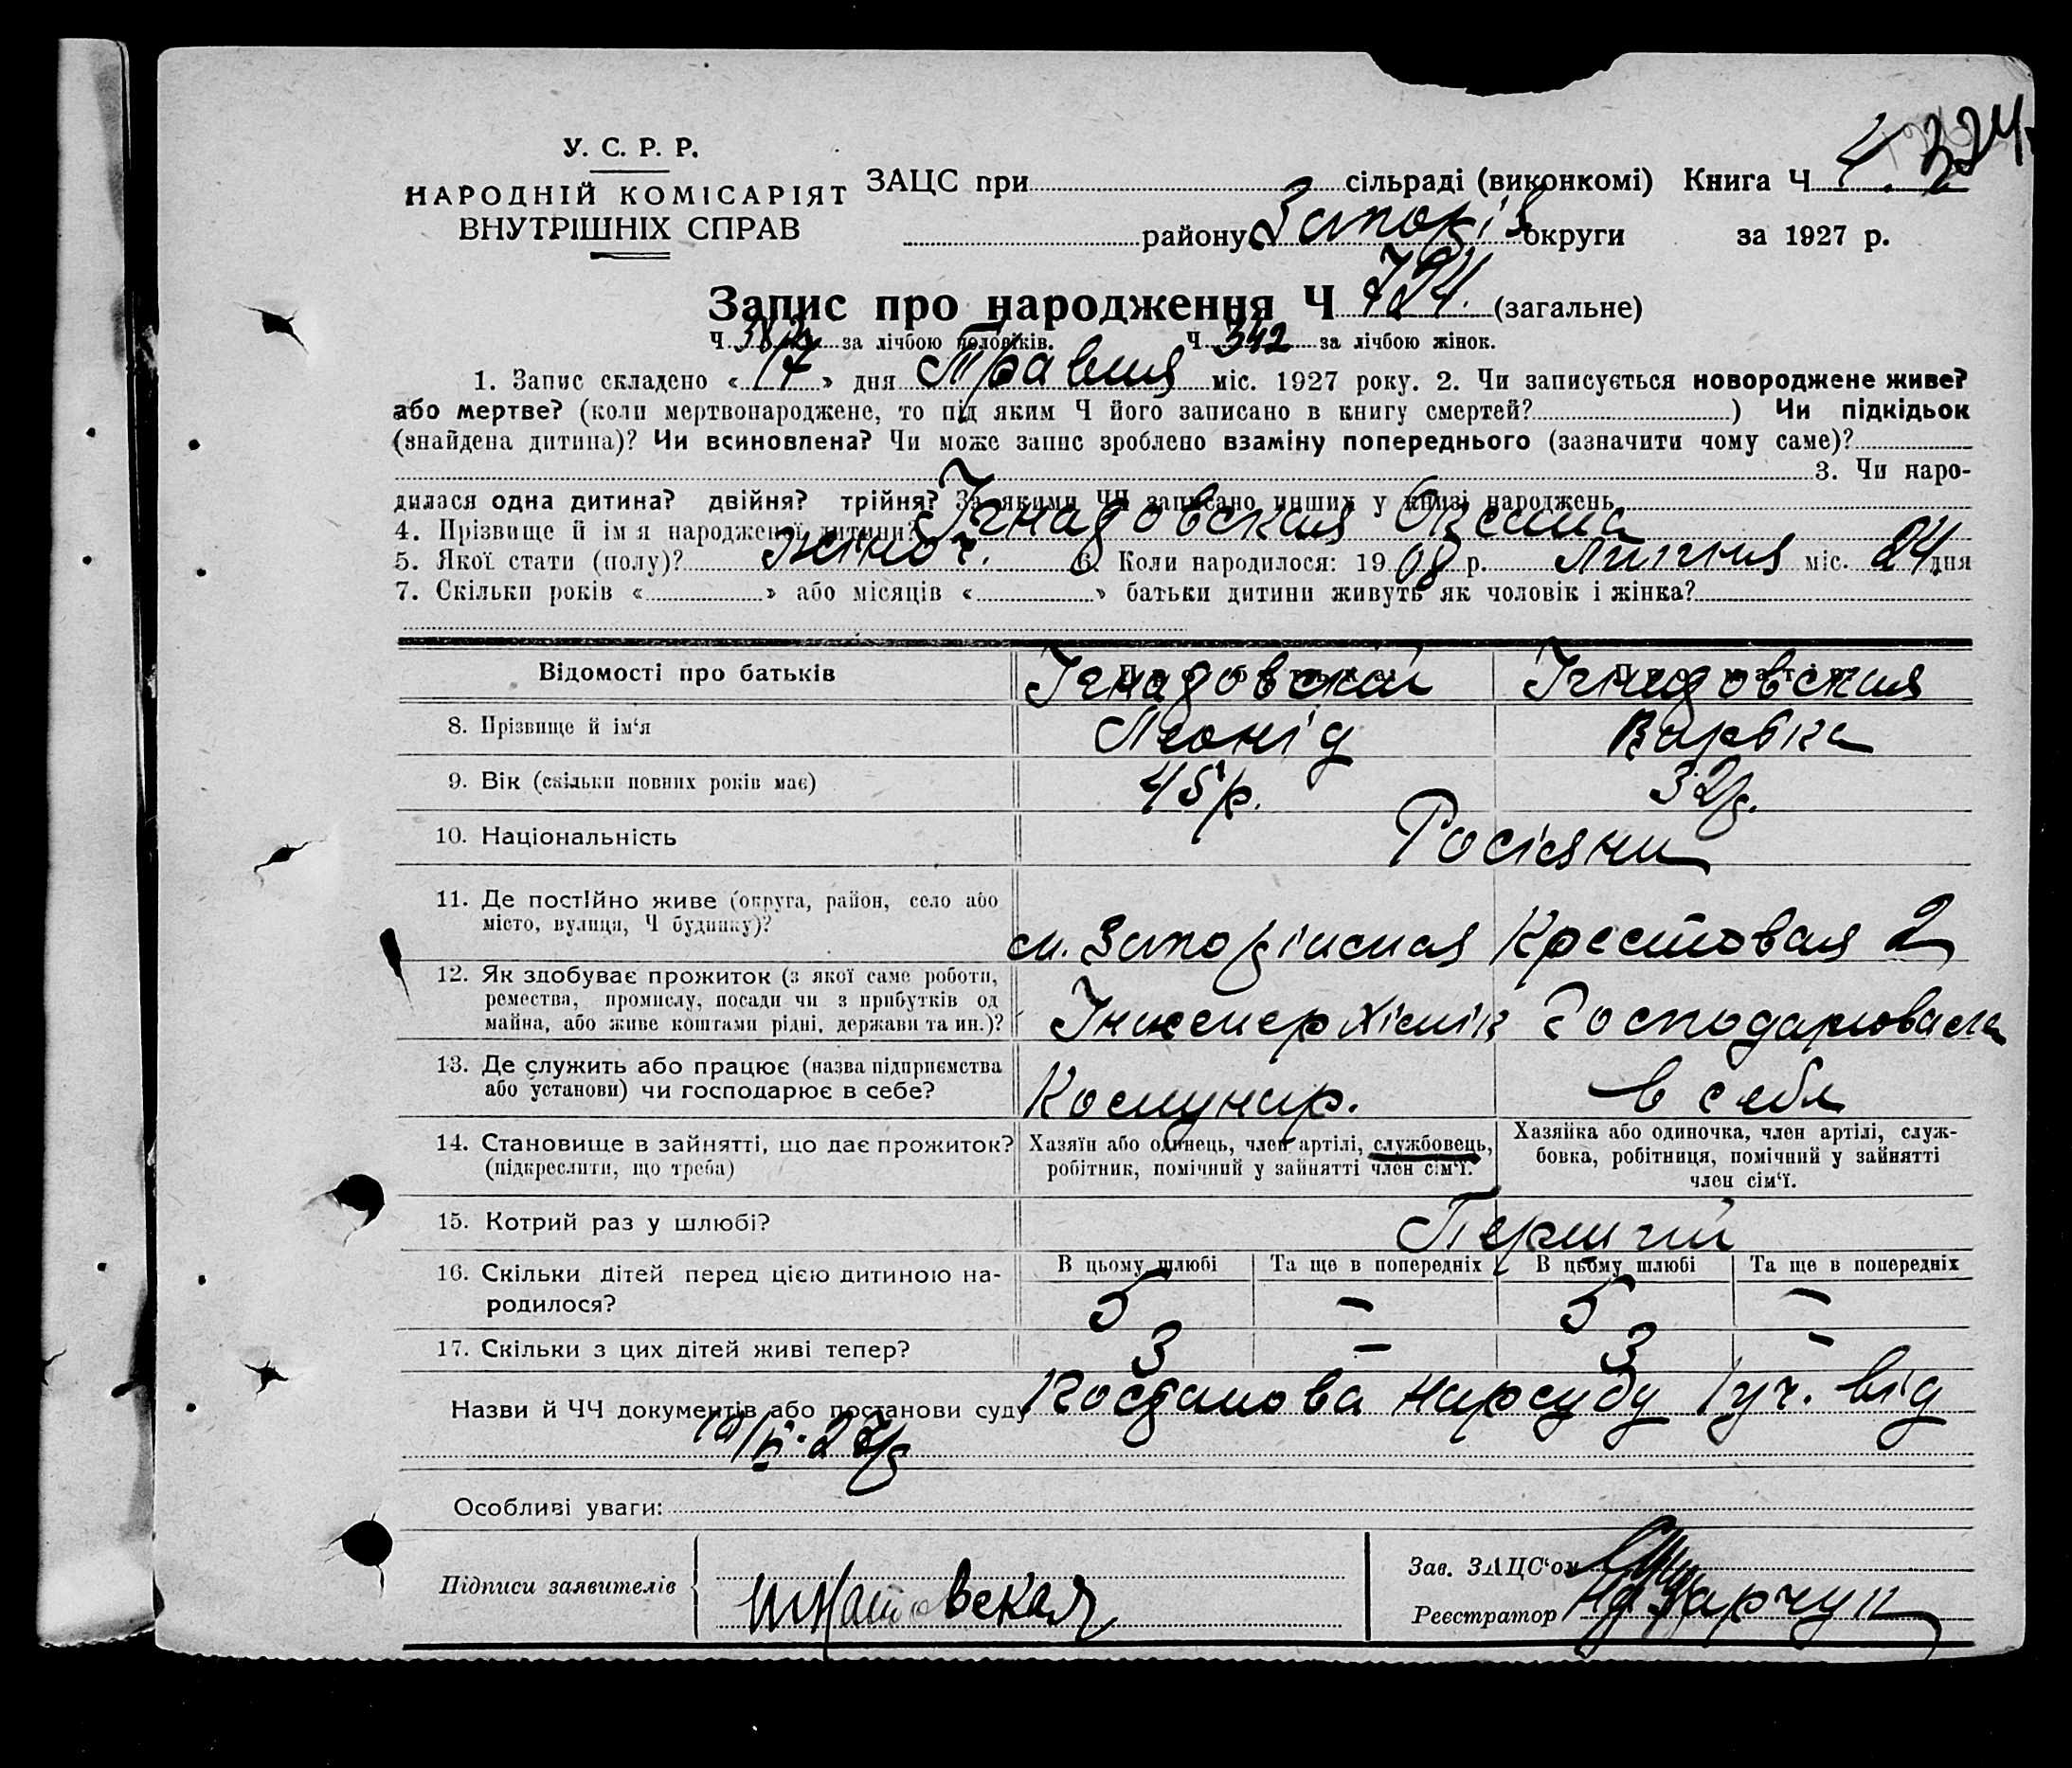 У. С. Р. Р.
НАРОДНІЙ КОМІСАРІЯТ
ВНУТРІШНІХ СПРАВ
ЗАЦС при сільраді (виконкомі) Книга Ч 4. 324.
району Запоріз округи за 1927 р.
Запис про народження Ч 724. (загальне)
Ч 382 за лічбою чоловіків. Ч 342 за лічбою жінок.
1. Запис складено « 17 » дня Травня міс. 1927 року. 2. Чи записується новороджене живе?
або мертве? (коли мертвонароджене, то під яким Ч його записано в книгу смертей? ) Чи підкідьок
(знайдена дитина)? Чи всиновлена? Чи може запис зроблено взаміну попереднього (зазначити чому саме)?
3. Чи наро-
дилася одна дитина? двійня? трійня? За якими ЧЧ записано инших у книзі народжень
4. Прізвище й ім я народженої дитини?
5. Якої стати (полу)? жіноч. 6. Коли народилося: 1908 р. Липня міс. 24 дня
7. Скільки років « » або місяців « » батьки дитини живуть як чоловік і жінка?
Відомості про батьків
8. Прізвище й ім‘я Леонід
9. Вік (скільки повних років має) 45 р. 32 р.
10. Національність Росіяни
11. Де постійно живе (округа, район, село або
місто, вулиця, Ч будинку)? м. Крестовая 2
12. Як здобуває прожиток (з якої саме роботи,
ремества, промислу, посади чи з прибутків од
майна, або живе коштами рідні, держави та ин.)? Інженер Хімік Господарювала
13. Де служить або працює (назва підприємства
або установи) чи господарює в себе? Комунар. в себе
14. Становище в зайнятті, що дає прожиток?
(підкреслити, що треба)
Хазяїн або одинець, член артілі, службовець,
робітник, помічний у зайнятті член сім‘ї.
Хазяйка або одиночка, член артілі, служ-
бовка, робітниця, помічний у зайнятті
член сім‘ї.
15. Котрий раз у шлюбі? Перший
В цьому шлюбі Та ще в попередніх В цьому шлюбі Та ще в попередніх
16. Скільки дітей перед цією дитиною на-
родилося? 5 – 5 –
17. Скільки з цих дітей живі тепер? 3 – 3 –
Назви й ЧЧ документів або постанови суду Нарсуду 1 уч. від
Особливі уваги:
Підписи заявителів
Зав. ЗАЦС‘ом
Реєстратор